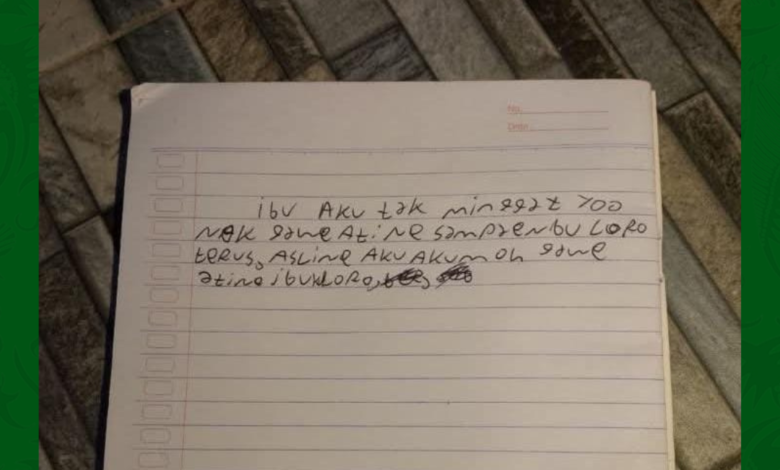 No.
Date
ibu AKU tak minggat yoo
nek gawe Atine sampaen bu LORO
terus, ASLine AKU AKU moh gawe
atine ibuk LORO,